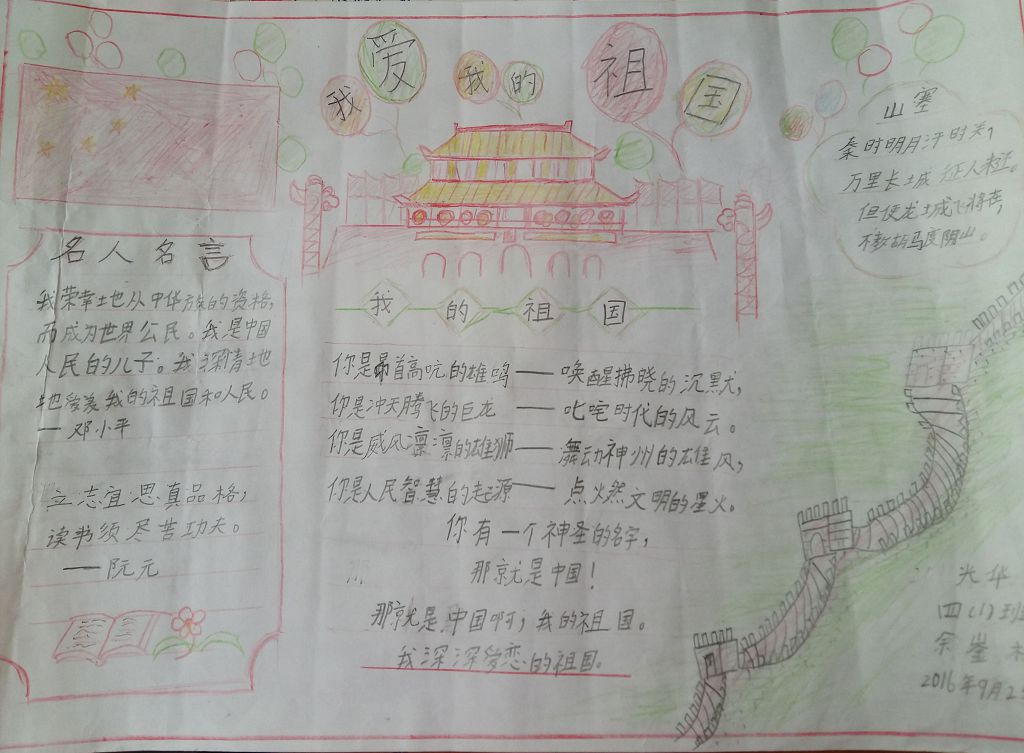 我爱我的祖国
名人名言
我荣幸地从中华族的资格,
而成为世界公民。我是中国
人民的儿子。我深情地
地爱着我的祖国和人民。
— 邓小平
立志宜思真品格,
读书须尽苦功夫。
— 阮元
我的祖国
你是昂首高吭的雄鸣 — 唤醒拂晓的沉默,
你是冲天腾飞的巨龙 — 叱咤时代的风云。
你是威风凛凛的雄狮 — 舞动神州的雄风,
你是人民智慧的起源 — 点燃文明的星火。
你有一个神圣的名字,
那就是中国!
那就是中国啊,我的祖国。
我深深爱恋的祖国。
山塞
秦时明月汗时关,
万里长城征人未还。
但使龙城飞将在,
不教胡马度阴山。
光华
四(1)班
2016年9月2